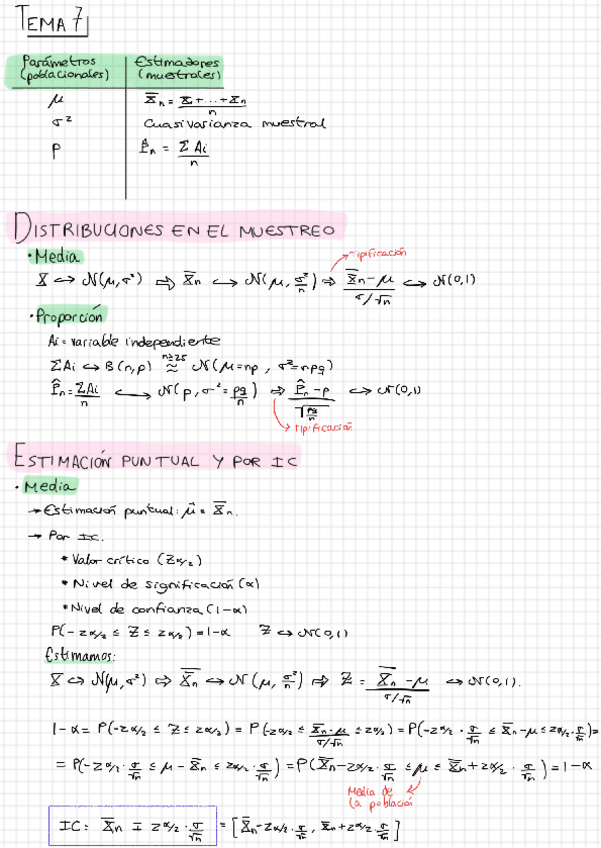 TEMA 7
Parámetros (poblacionales) Estimadores (muestrales)
μ X̄n = X1+...+Xn / n
σ² Cuasivarianza muestral
p P̂n = Σ Ai / n
DISTRIBUCIONES EN EL MUESTREO
• Media
Tipificación
X ↔ N(μ,σ²) ⇒ X̄n ↔ N(μ, σ²/n) ⇒ X̄n-μ / σ/√n ↔ N(0,1)
• Proporción
Ai = variable independiente
ΣAi ↔ B(n,p) n≥25 ≈ N(μ=np, σ²=npq)
P̂n = ΣAi / n ↔ N(p, σ²=pq/n) ⇒ P̂n-p / √pq/n ↔ N(0,1)
Tipificación
ESTIMACIÓN PUNTUAL Y POR IC
• Media
→ Estimación puntual: μ̂ = X̄n.
→ Por IC.
* Valor crítico (Zα/2)
* Nivel de significación (α)
* Nivel de confianza (1-α)
P(-zα/2 ≤ Z ≤ zα/2) = 1-α Z ↔ N(0,1)
Estimamos:
X ↔ N(μ,σ²) ⇒ X̄n ↔ N(μ, σ²/n) ⇒ Z = X̄n-μ / σ/√n ↔ N(0,1).
1-α = P(-zα/2 ≤ Z ≤ zα/2) = P(-zα/2 ≤ X̄n-μ / σ/√n ≤ zα/2) = P(-zα/2 · σ/√n ≤ X̄n-μ ≤ zα/2 · σ/√n) =
= P(-zα/2 · σ/√n ≤ μ-X̄n ≤ zα/2 · σ/√n) = P(X̄n-zα/2 · σ/√n ≤ μ ≤ X̄n+zα/2 · σ/√n) = 1-α
Media de
la población
IC: X̄n ∓ zα/2 · σ/√n = [X̄n-zα/2 · σ/√n, X̄n+zα/2 · σ/√n]